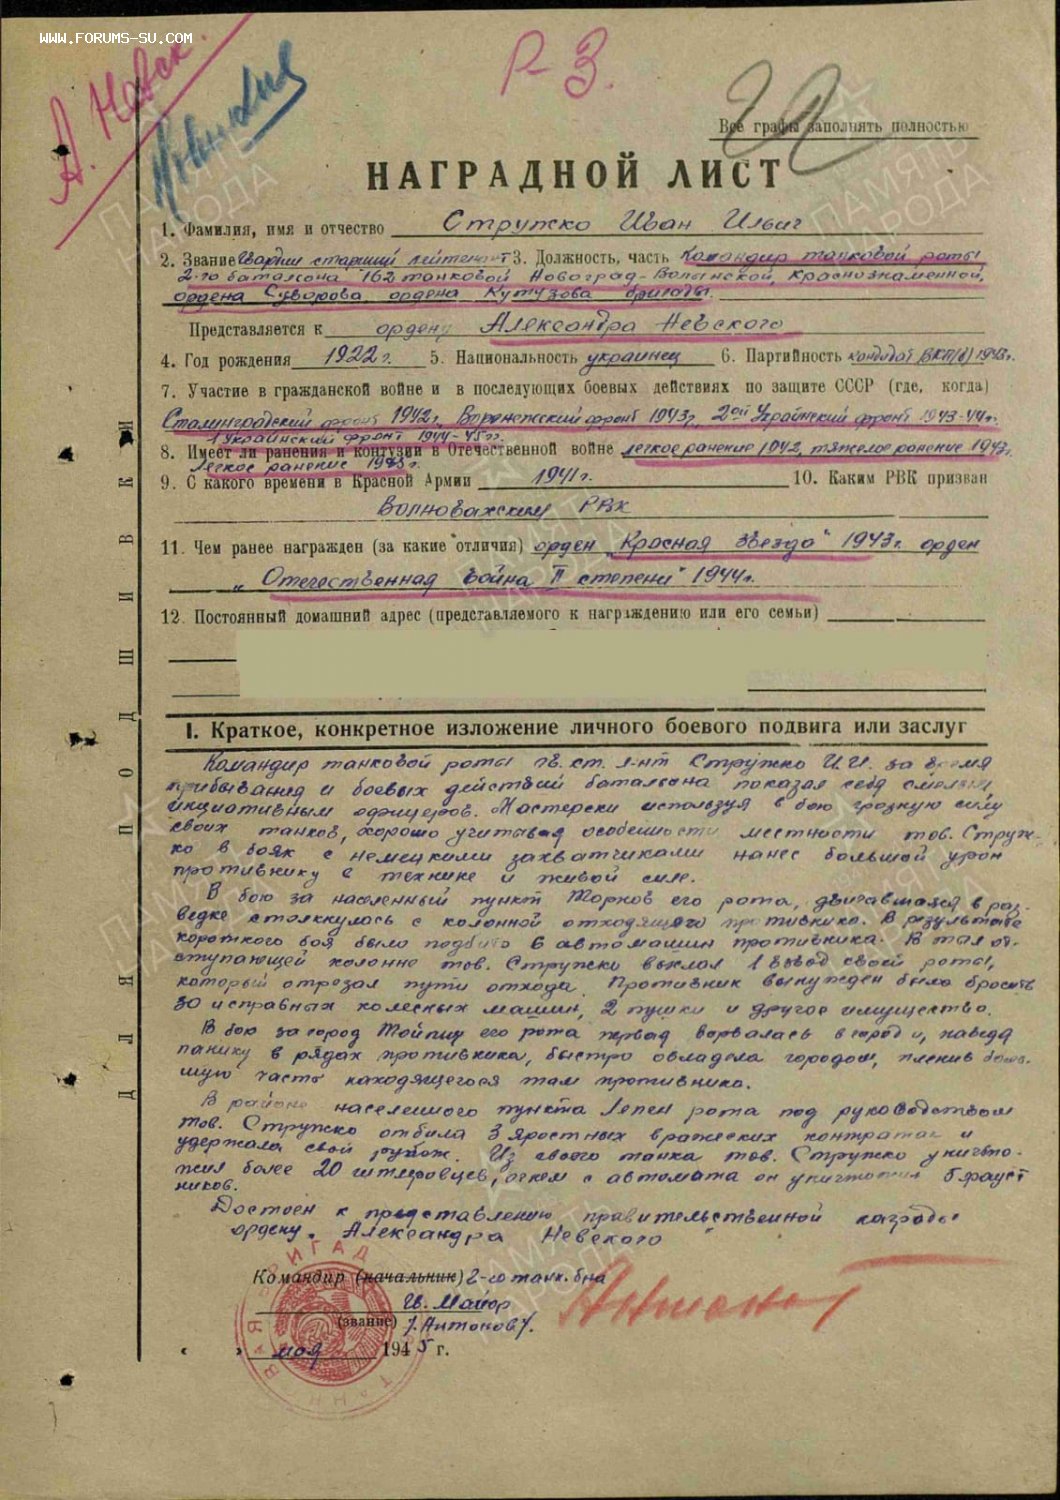 WWW.FORUMS-SU.COM
А. Невск.
Р-3.
Все графы заполнять полностью
НАГРАДНОЙ ЛИСТ
1. Фамилия, имя и отчество Стружко Иван Ильич
2. Звание Гвардии старший лейтенант 3. Должность, часть Командир танковой роты
2-го батальона 162 танковой Новоград-Волынской, Краснознаменной,
ордена Суворова ордена Кутузова бригады.
Представляется к ордену Александра Невского
4. Год рождения 1922 г. 5. Национальность украинец 6. Партийность кандидат ВКП(б) 1943г.
7. Участие в гражданской войне и в последующих боевых действиях по защите СССР (где, когда)
Сталинградский фронт 1942г., Воронежский фронт 1943г, 2ой Украинский фронт 1943-44гг.
1 Украинский фронт 1944-45гг.
8. Имеет ли ранения и контузии в Отечественной войне легкое ранение 1942, тяжелое ранение 1943г.
легкое ранение 1943г.
9. С какого времени в Красной Армии 1941г. 10. Каким РВК призван
Волновахским РВК
11. Чем ранее награжден (за какие отличия) орден „Красная звезда" 1943г. орден
„Отечественная война II степени" 1944г.
12. Постоянный домашний адрес (представляемого к награждению или его семьи)
I. Краткое, конкретное изложение личного боевого подвига или заслуг
Командир танковой роты гв. ст. л-нт Стружко И.И. за время
прибывания и боевых действий батальона показал себя смелым
инциативным офицером. Мастерски используя в бою грозную силу
своих танков, хорошо учитывая особенности местности тов. Струж-
ко в боях с немецкими захватчиками нанес большой урон
противнику в технике и живой силе.
В бою за населенный пункт его рота, двигавшаяся в раз-
ведке столкнулась с колонной отходящего противника. В результате
короткого боя было подбито 6 автомашин противника. В тыл от-
ступающей колонне тов. Стружко выслал 1 взвод своей роты,
который отрезал пути отхода. Противник вынужден был бросить
30 исправных колесных машин, 2 пушки и другое имущество.
В бою за город его рота первая ворвалась в город и, наведя
панику в рядах противника, быстро овладела городом, пленив боль-
шую часть находящегося там противника.
В районе населенного пункта Лепен рота под руководством
тов. Стружко отбила 3 яростных вражеских контратак и
удержала свой рубеж. Из своего танка тов. Стружко уничто-
жил более 20 гитлеровцев, огнем с автомата он уничтожил 6 фауст
ников.
Достоен к представлению правительственной награды
ордену „Александра Невского"
Командир (начальник) 2-го танк. б-на
Гв. Майор
(звание) /Антонов/.
« » мая 1945 г.
Антонов
ДЛЯ ПОДШИВКИ
ТАНКОВАЯ БРИГАДА
ПАМЯТЬ НАРОДА